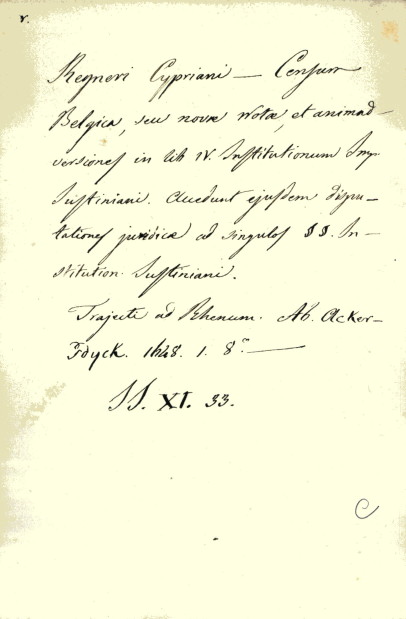 r.
Regneri Cypriani — Censura
Belgica, seu novæ notæ, et animad-
versiones in lib IV. Institutionum Imp.
Justiniani. Accedunt ejusdem dispu-
tationes juridicæ ad singulos §§. In-
stitution. Justiniani.
Trajecti ad Rhenum. Ab. Acker-
Fdyck. 1648. 1. 8°.—
SS. XI. 33.
C